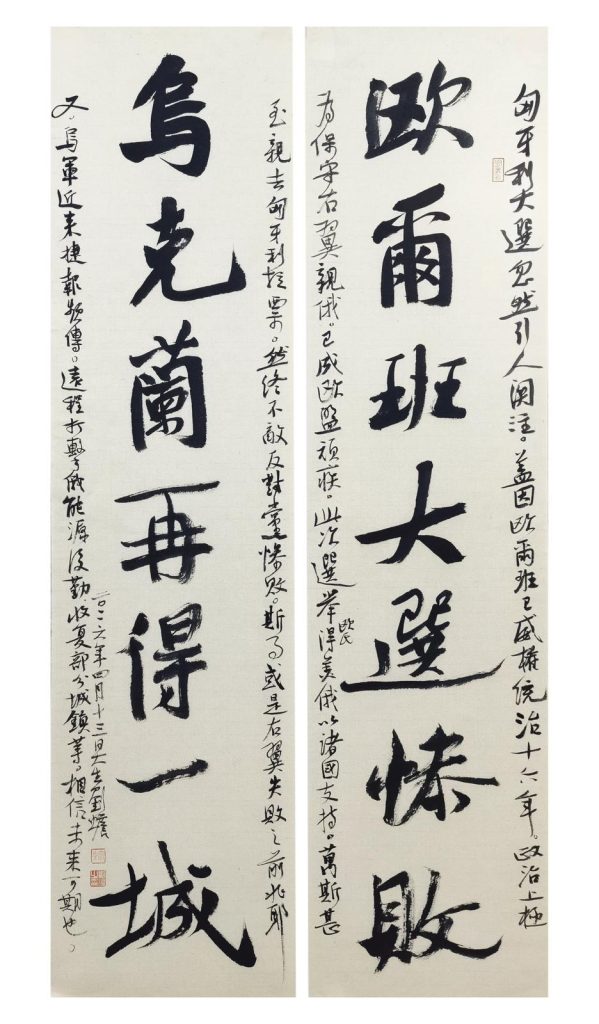 匈牙利大選忽然引人関注。蓋因欧爾班已威權统治十六年。政治上極
欧爾班大選慘敗
為保守右翼親俄。已成欧盟頑疾。此次選舉欧氏得美俄以諸國支持。萬斯甚
至親去匈牙利拉票。然終不敵反對黨慘敗。斯乃或是右翼失敗之前兆耶
烏克蘭再得一城
又。烏軍近来捷報頻傳。遠程打擊俄能源後勤。收复部分城鎮等。相信未来可期也。
二〇二六年四月十三日